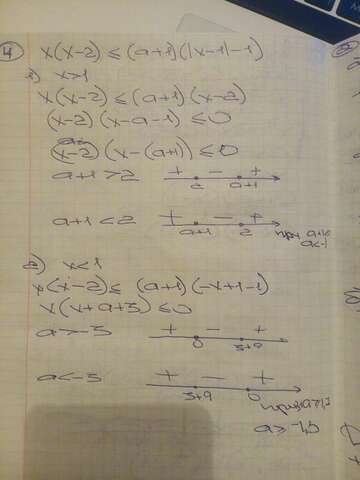 4 x(x-2) ≤ (a+1)(|x-1|-1)
1) x>1
x(x-2) ≤ (a+1)(x-2)
(x-2)(x-a-1) ≤ 0
(x-2)(x-(a+1)) ≤ 0
a+1>2 + - +
2 a+1
a+1<2 + - +
a+1 2
при
a<-1
2) x<1
x(x-2) ≤ (a+1)(-x+1-1)
x(x+a+3) ≤ 0
a>-3 + - +
0 3+a
a<-3 + - +
3+a 0